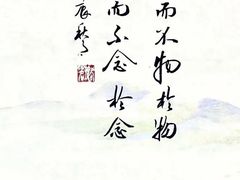 而不物於物
而不念於念
辰秋